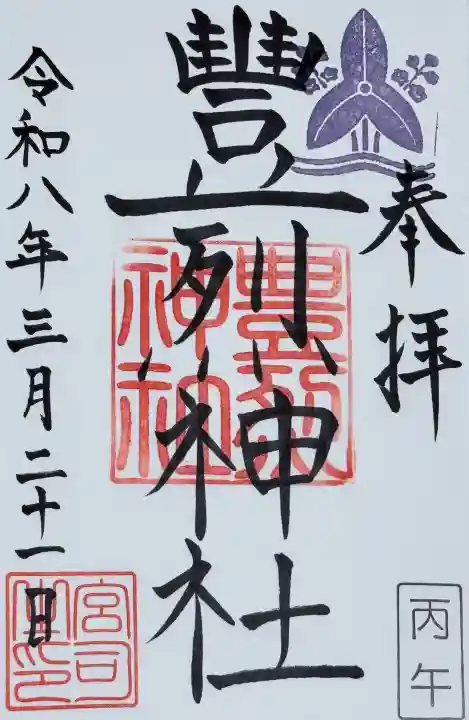 奉拝
豐烈神社
豊烈神社
令和八年三月二十一日
丙午